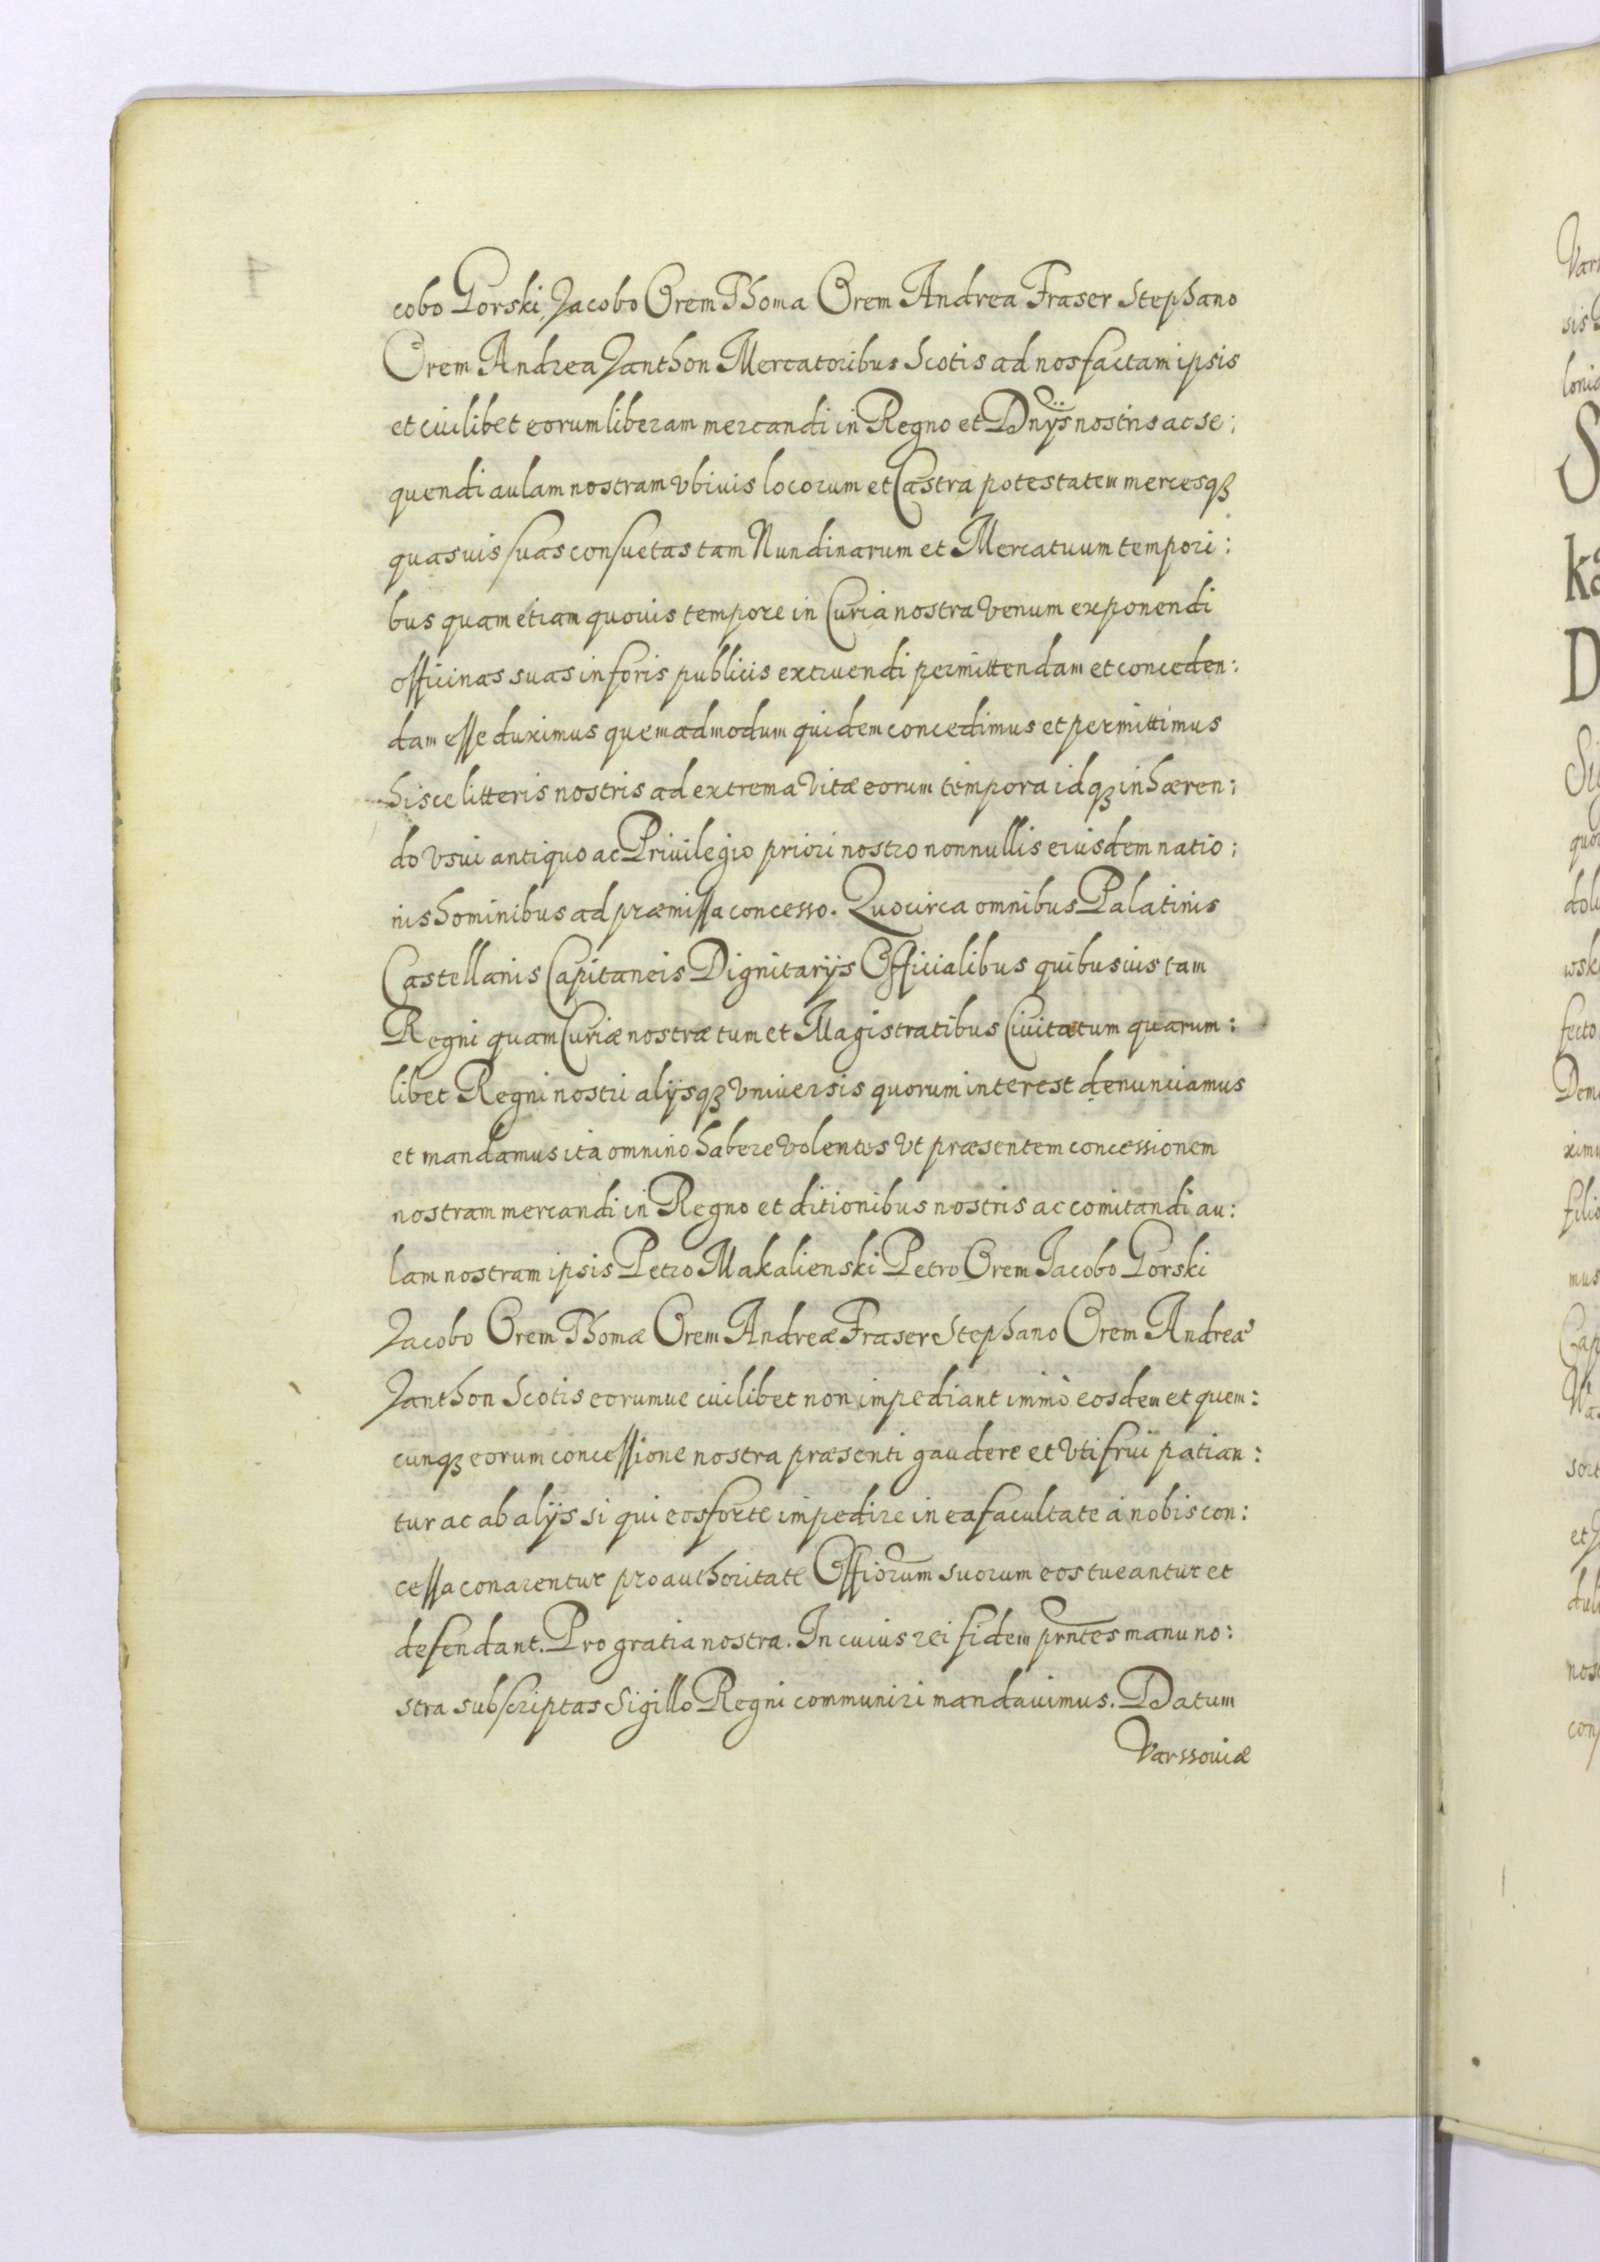 cobo Gorski, Jacobo Orem Thoma Orem Andrea Fraser Stephano
Orem Andrea Janthon Mercatoribus Scotis ad nos factam ipsis
et cuilibet eorum liberam mercandi in Regno et Dnÿs nostris ac se:
quendi aulam nostram vbiuis locorum et Castra potestatem mercesqꝫ
quasuis suas consuetas tam Nundinarum et Mercatuum tempori:
bus quam etiam quouis tempore in Curia nostra venum exponendi
officinas suas in foris publicis extruendi permittendam et conceden:
dam esse duximus quemadmodum quidem concedimus et permittimus
hisce litteris nostris ad extrema vitæ eorum tempora idqꝫ inhæren:
do vsui antiquo ac Priuilegio priori nostro nonnullis eiusdem natio:
nis hominibus ad præmissa concesso. Quocirca omnibus Palatinis
Castellanis Capitaneis Dignitarÿs Officialibus quibusuis tam
Regni quam Curiæ nostræ tum et Magistratibus Ciuitatum quarum:
libet Regni nostri alÿsqꝫ vniuersis quorum interest denunciamus
et mandamus ita omnino habere volentes vt præsentem concessionem
nostram mercandi in Regno et ditionibus nostris ac comitandi au:
lam nostram ipsis Petro Makalienski Petro Orem Jacobo Gorski
Jacobo Orem Thomæ Orem Andreæ Fraser Stephano Orem Andreæ
Janthon Scotis eorumue cuilibet non impediant immò eosdem et quem:
cunqꝫ eorum concessione nostra præsenti gaudere et vti frui patian:
tur ac ab alÿs si qui eos forte impedire in ea facultate à nobis con:
cessa conarentur pro authoritate Offiorum suorum eos tueantur et
defendant. Pro gratia nostra. In cuius rei fidem prntes manu no:
stra subscriptas Sigillo Regni communiri mandauimus. Datum
Varssouiæ